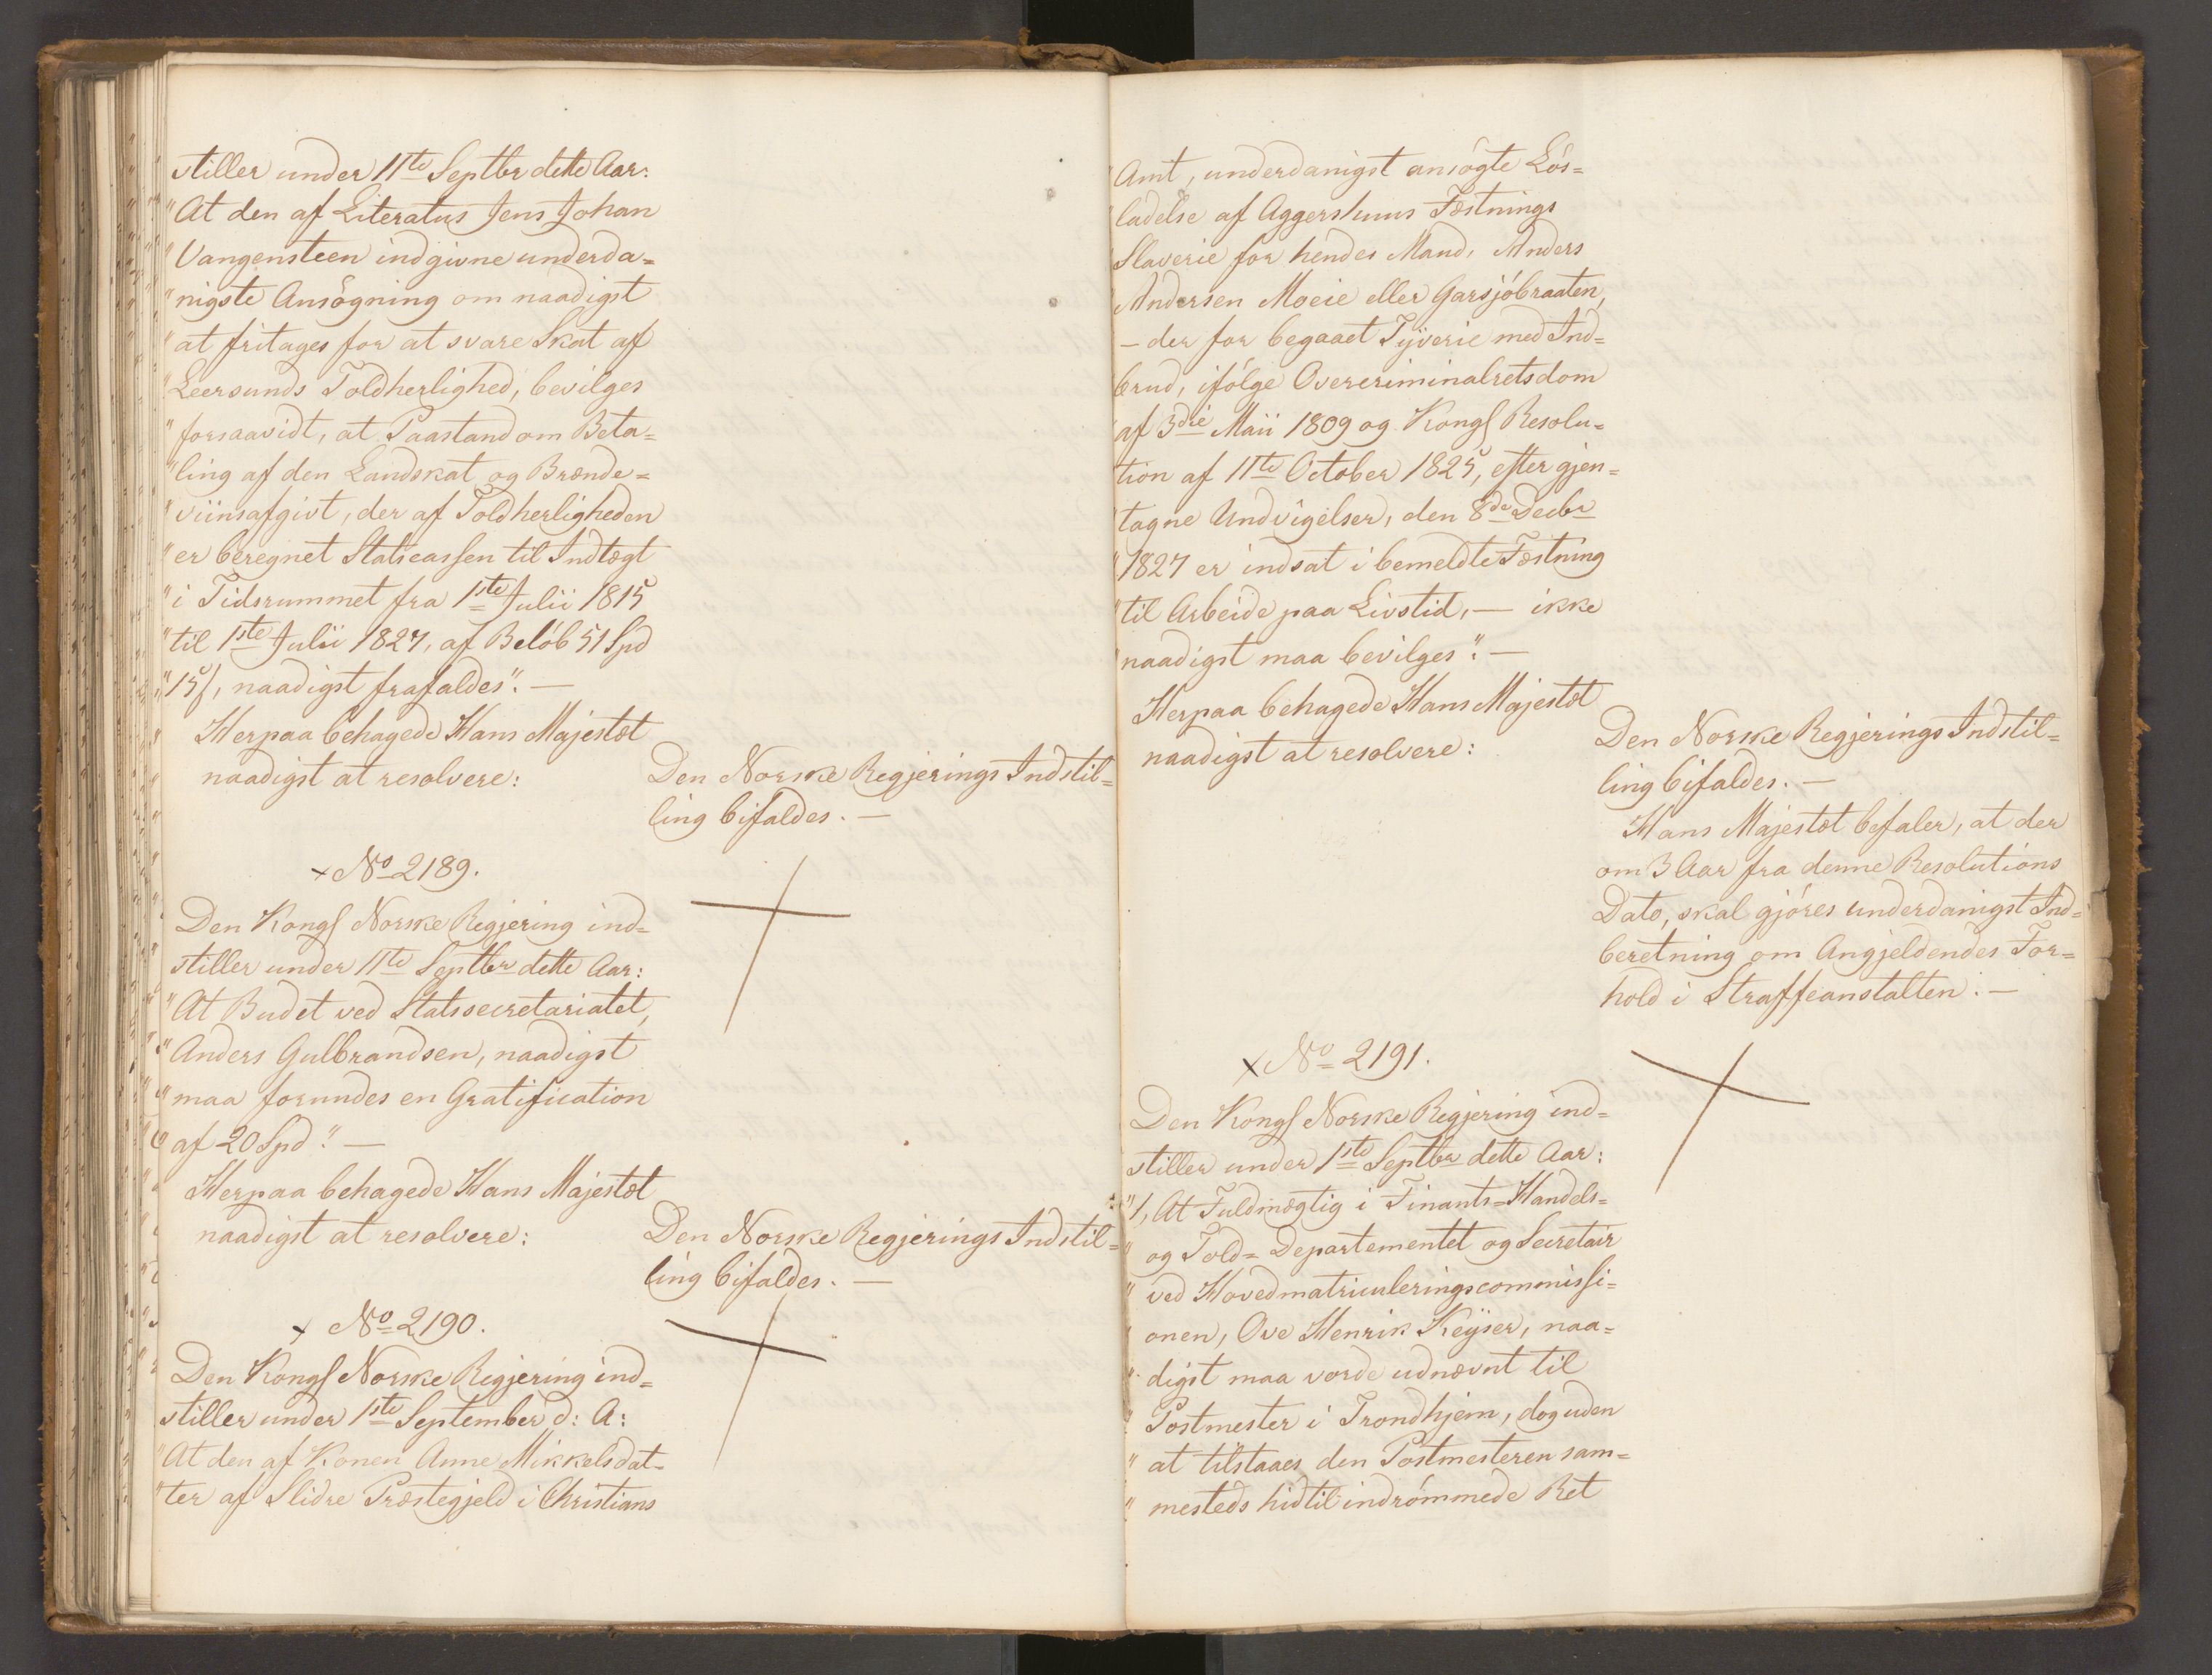 stiller under 11te Septbr dette Aar:
"At den af Literatus Jens Johan
"Vangensteen indgivne underda=
"nigste Ansögning om naadigst
"at fritages for at svare Skat af
"Leersunds Toldherlighed, bevilges
"forsaavidt, at Paastand om Beta=
"ling af den Landskat og Brænde=
"viinsafgivt, der af Toldherligheden
"er beregnet Statscassen til Indtægt
"i Tidsrummet fra 1ste Julii 1815
"til 1ste Julii 1827, af Belöb 51 Spd
"15ſ, naadigst frafaldes". —
Herpaa behagede Hans Majestæt
naadigst at resolvere:
Den Norske Regjerings Indstil=
ling bifaldes. —
+ No 2189.
Den Kongl Norske Regjering ind=
stiller under 11te Septbr dette Aar:
"At Budet ved Statssecretariatet,
"Anders Gulbrandsen, naadigst
"maa forundes en Gratification
"af 20 Spd". —
Herpaa behagede Hans Majestæt
naadigst at resolvere:
Den Norske Regjerings Indstil=
ling bifaldes. —
+ No 2190.
Den Kongl Norske Regjering ind=
stiller under 1ste September d: A:
"At den af Konen Anne Mikkelsdat=
"ter af Slidre Præstegjeld i Christians
"Amt, underdanigst ansögte Lös=
"ladelse af Aggershuus Fæstnings
"Slaverie for hendes Mand, Anders
"Andersen Moeie eller Garsjöbraaten,
"— der for begaaet Tyverie med Ind=
"brud, ifölge Overcriminalretsdom
"af 3die Maii 1809 og Kongl Resolu=
"tion af 11te October 1825, efter gjen=
"tagne Undvigelser, den 8de Decbr
"1827 er indsat i bemeldte Fæstning
"til Arbeide paa Livstid, — ikke
"naadigst maa bevilges". —
Herpaa behagede Hans Majestæt
naadigst at resolvere:
Den Norske Regjerings Indstil=
ling bifaldes. —
Hans Majestæt befaler, at der
om 3 Aar fra denne Resolutions
Dato, skal gjöres underdanigst Ind=
beretning om Angjeldendes For=
hold i Straffeanstalten. —
+ No 2191.
Den Kongl Norske Regjering ind=
stiller under 1ste Septbr dette Aar:
"1, At Fuldmægtig i Finants= Handels=
" og Told= Departementet og Secretair
" ved Hovedmatriculeringscommissi=
" onen, Ove Henrik Keyser, naa=
" digst maa vorde udnævnt til
" Postmester i Trondhjem, dog uden
" at tilstaaes den Postmesteren sam=
" mesteds hidtil indrömmede Ret